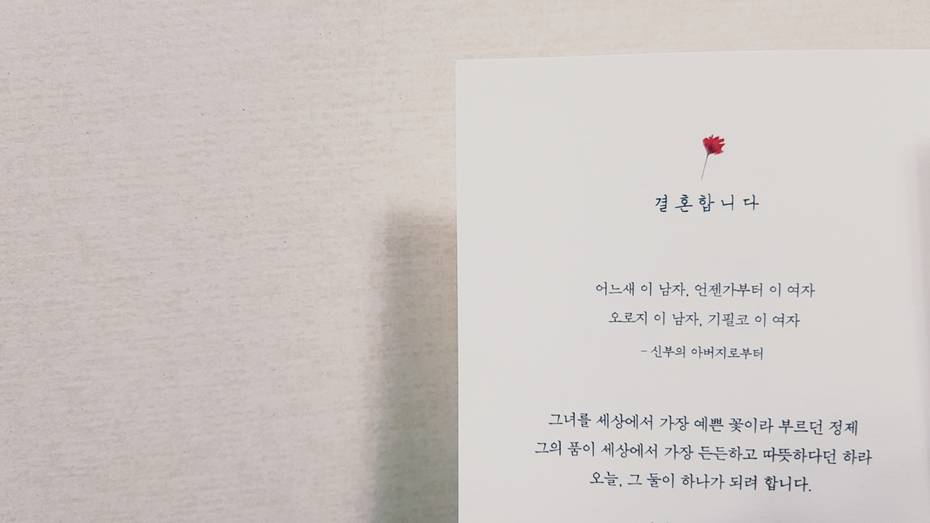 결혼합니다
어느새 이 남자, 언젠가부터 이 여자
오로지 이 남자, 기필코 이 여자
- 신부의 아버지로부터
그녀를 세상에서 가장 예쁜 꽃이라 부르던 정제
그의 품이 세상에서 가장 든든하고 따뜻하다던 하라
오늘, 그 둘이 하나가 되려 합니다.